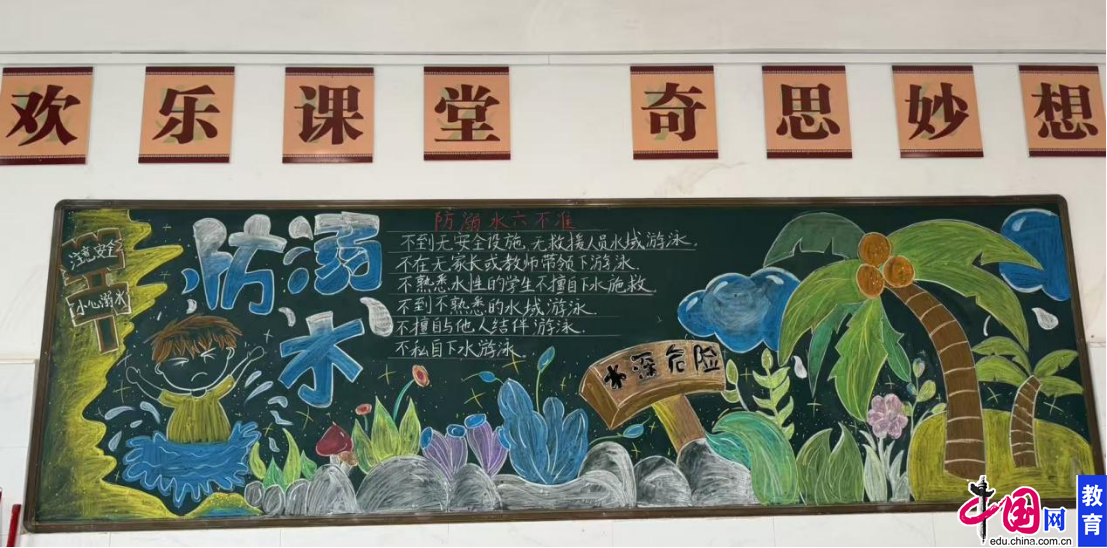 欢乐课堂 奇思妙想
注意安全
小心溺水
防溺水
防溺水六不准
不到无安全设施,无救援人员水域游泳.
不在无家长或教师带领下游泳
不熟悉水性的学生不擅自下水施救.
不到不熟悉的水域游泳.
不擅自与他人结伴游泳.
不私自下水游泳.
水深危险
中国网
edu.china.com.cn
教育